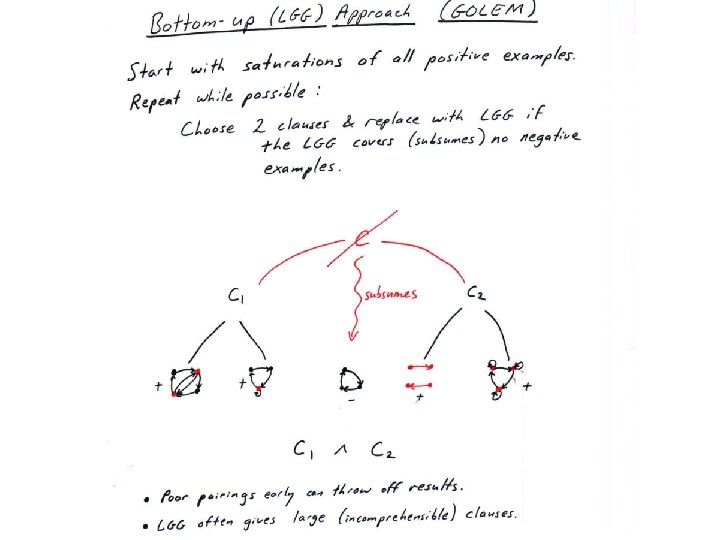 Bottom-up (LGG) Approach (GOLEM)
Start with saturations of all positive examples.
Repeat while possible :
Choose 2 clauses & replace with LGG if
the LGG covers (subsumes) no negative
examples.
C
C1 subsumes C2
+ + - + +
C1 ∧ C2
• Poor pairings early can throw off results.
• LGG often gives large (incomprehensible) clauses.